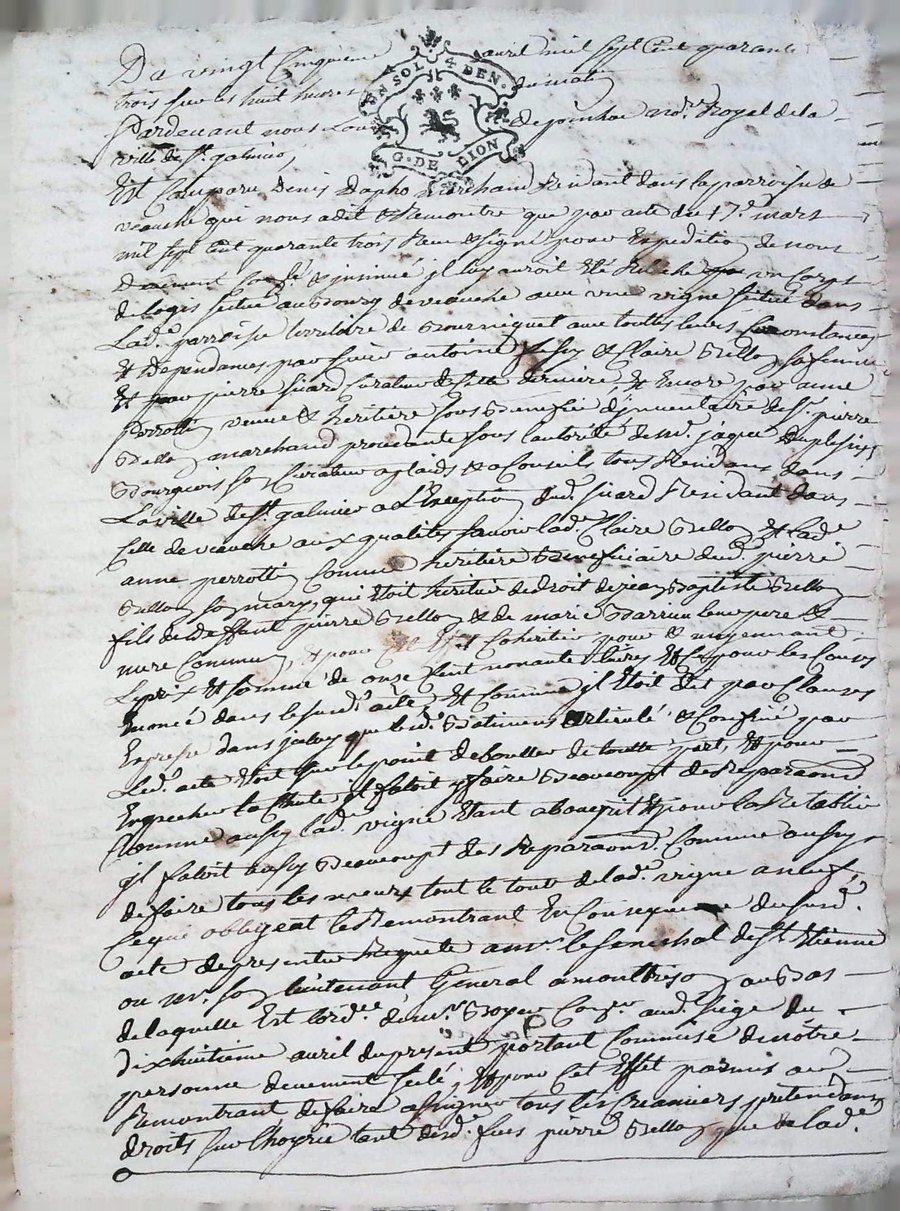 Du vingt Cinquieme avril mil sept Cent quarante
trois sur les huit heures du matin
Pardevant nous Lou de no.re Royal de la
ville de St. galmier,
EN SOL. 4 DEN.
G. DE LION
Est Comparu Denis Dapho marchand Residant dans la parroisse de
veauche qui nous a dit & Remontré que par acte du 17.e mars
mil sept Cent quarante trois Receu & signé pour Expedition de nous
deuement & insinué jl luy auroit Eté Relaché un Corps
de logis situé au Bourg de veauche avec une vigne située dans
Lad.e parroisse territoire de Bourniquet avec touttes leurs Circonstances
Et Dependances par sieur antoine & Claire Bello sa femme
Et par pierre Sicard Curateur de cette derniere, Et Encore par anne
perrotin veuve & heritière sous Benefice d'jnventaire de Sr. pierre
Bello marchand procedante sous l'autorité de Mr. jaques Duplessix
Bourgeois son Curateur a plaids & a Conseils tous Residans dans
La ville de St. galmier a L'Exception dud. Sicard Residant dans
Celle de veauche aux qualités savoir lad.e Claire Bello Et lad.e
anne perrotin Comme heritière Beneficiaire dud. pierre
Bello son mary, qui Etoit heritier de droit de jean Baptiste Bello
fils de deffunt pierre Bello & de marie leur pere &
mere Commun, & pour Cohéritier pour & moyennant
Le prix Et somme de onze Cent nonante livres Et Ce pour les Causes
Enoncé dans le susd. acte, Et Comme jl Etoit dit par Clauses
Expresse dans jceluy que led. Batiment articulé & Confiné par
Led. acte Etoit sur le point de Crouller de toutte part, Et pour
Empecher la Chute jl faloit y faire Beaucoupt de Reparaons
Comme aussy lad.e vigne Etant Et pour la Retablir
jl faloit aussy Beaucoupt des Reparaons. Comme aussy
de faire tous les tout le tour de lad.e vigne a neuf,
Ce qui obligeat le Remontrant En Consequence du susd.
acte de presenter Requete a mr. le Senechal de St. Etienne
ou Mr. son lieutenant General a montbrison au Bas
de laquelle Est l'ord.ce de Mr. Boyer Con.er aud. Siege du
dixhuitieme avril du present portant Commise de nôtre
personne deuement scelé, Et pour Cet Effet permis au
Remontrant de faire assigner tous les Creanciers pretendans
droits sur l'hoyrie tant desd. feus pierre Bello que de lad.e